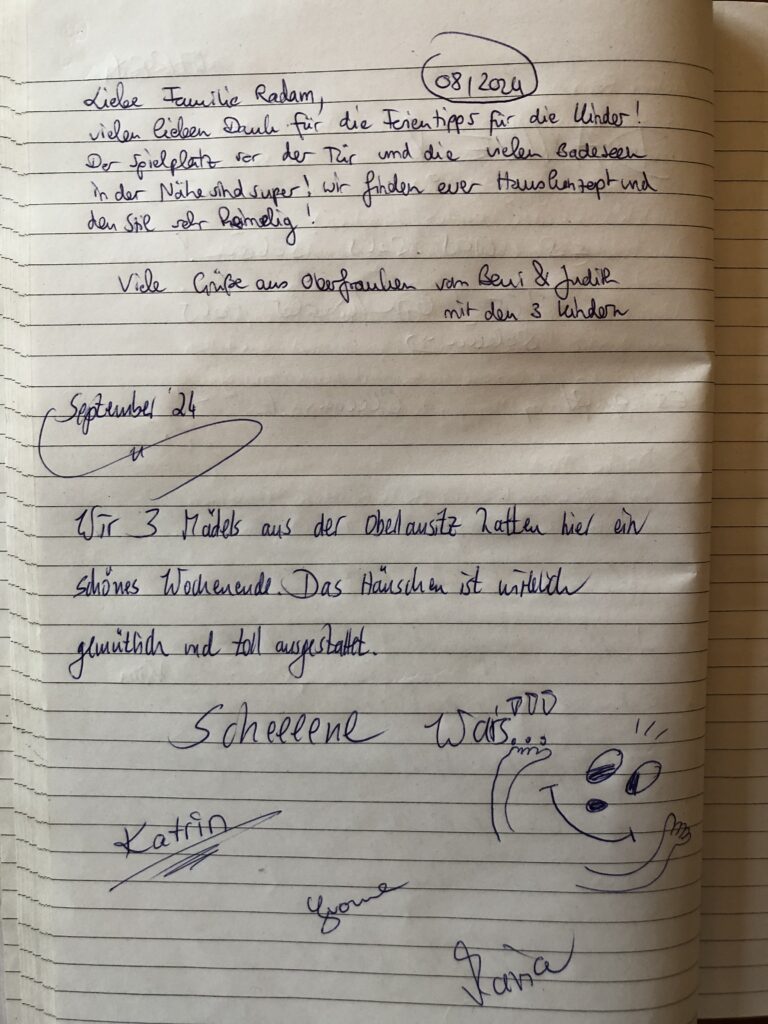 08/2024
Liebe Familie Radam,
vielen lieben Dank für die Ferientipps für die Kinder!
Der Spielplatz vor der Tür und die vielen Badeseen
in der Nähe sind super! Wir finden euer Hauskonzept und
den Stil sehr heimelig!
Viele Grüße aus Oberfranken von Beni & Judith
mit den 3 Kindern
September '24
Wir 3 Mädels aus der Oberlausitz hatten hier ein
schönes Wochenende. Das Häuschen ist wirklich
gemütlich und toll ausgestattet.
Scheeeene Wars...
Katrin
Yvonne